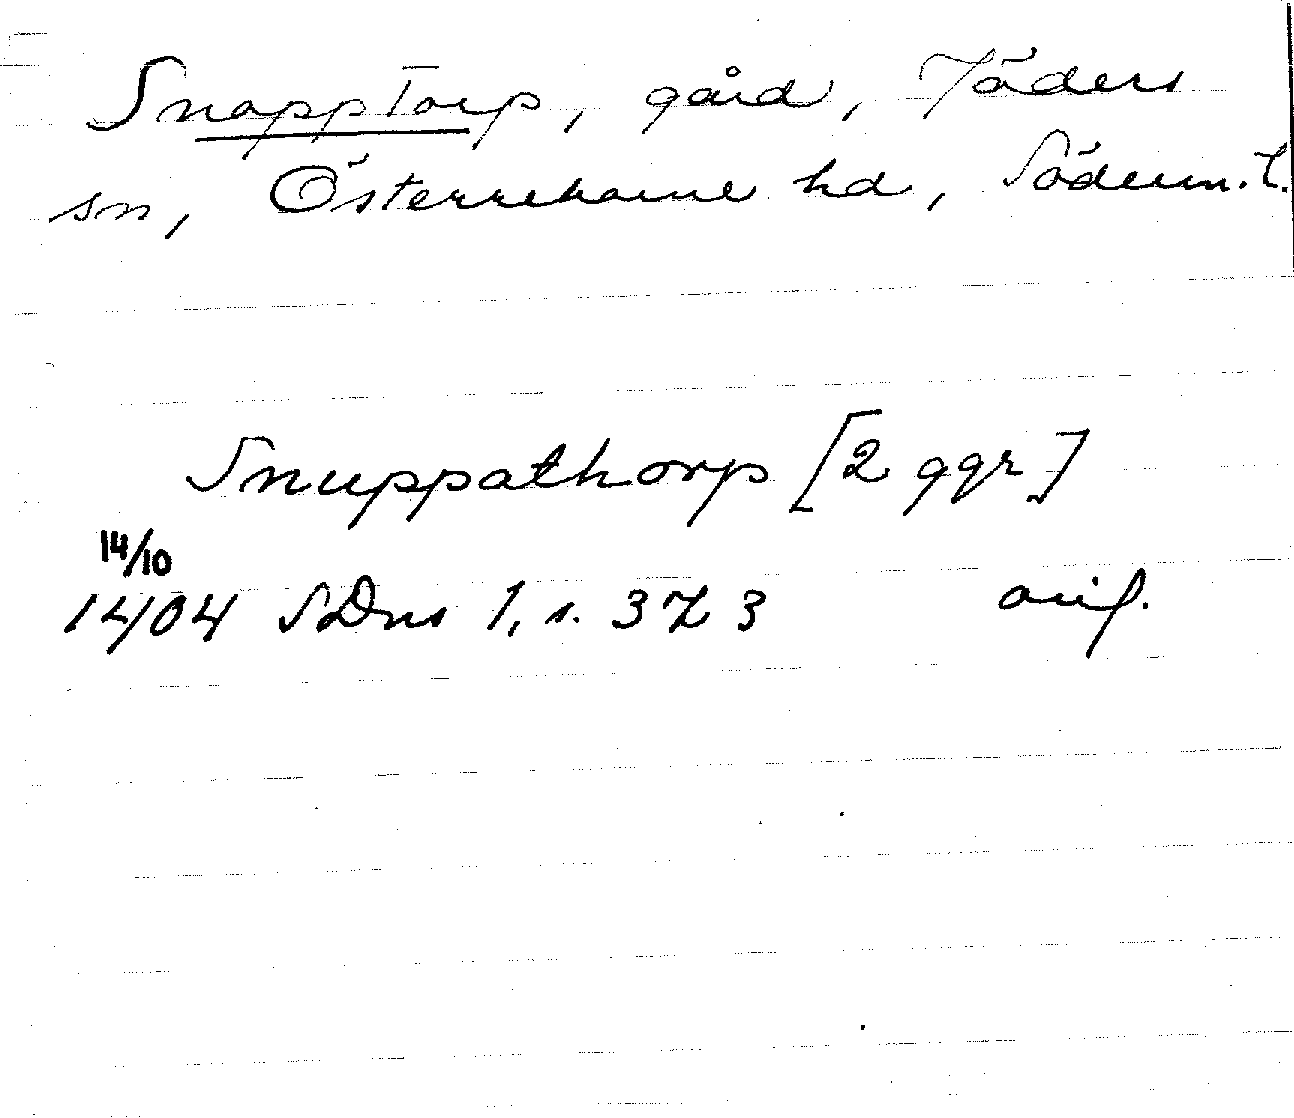 Snopptorp, gård, Jäders
sn, Österrekarne hd, Söderm. l.
Snuppathorp [2 ggr]
14/10
1404 SDns 1, s. 373 orig.